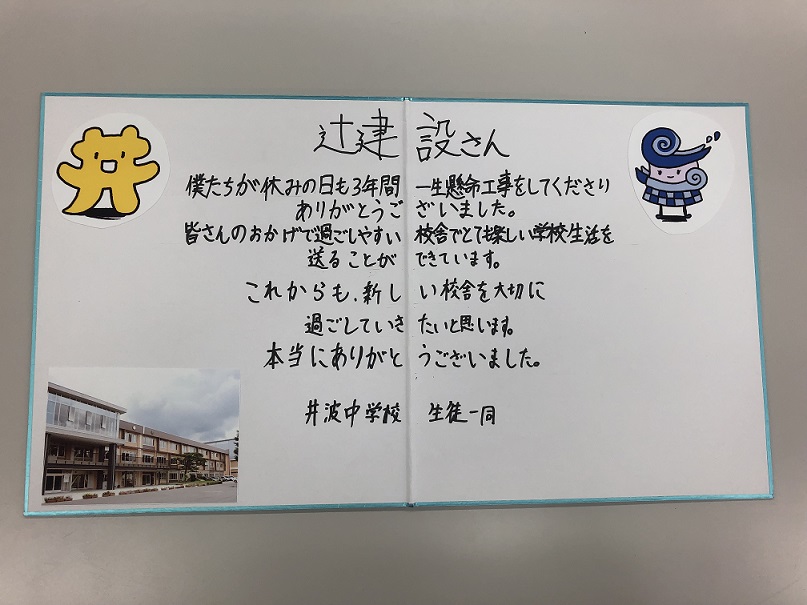 辻建設さん
僕たちが休みの日も3年間一生懸命工事をしてくださり
ありがとうございました。
皆さんのおかげで過ごしやすい校舎でとても楽しい学校生活を
送ることができています。
これからも、新しい校舎を大切に
過ごしていきたいと思います。
本当にありがとうございました。
井波中学校 生徒一同